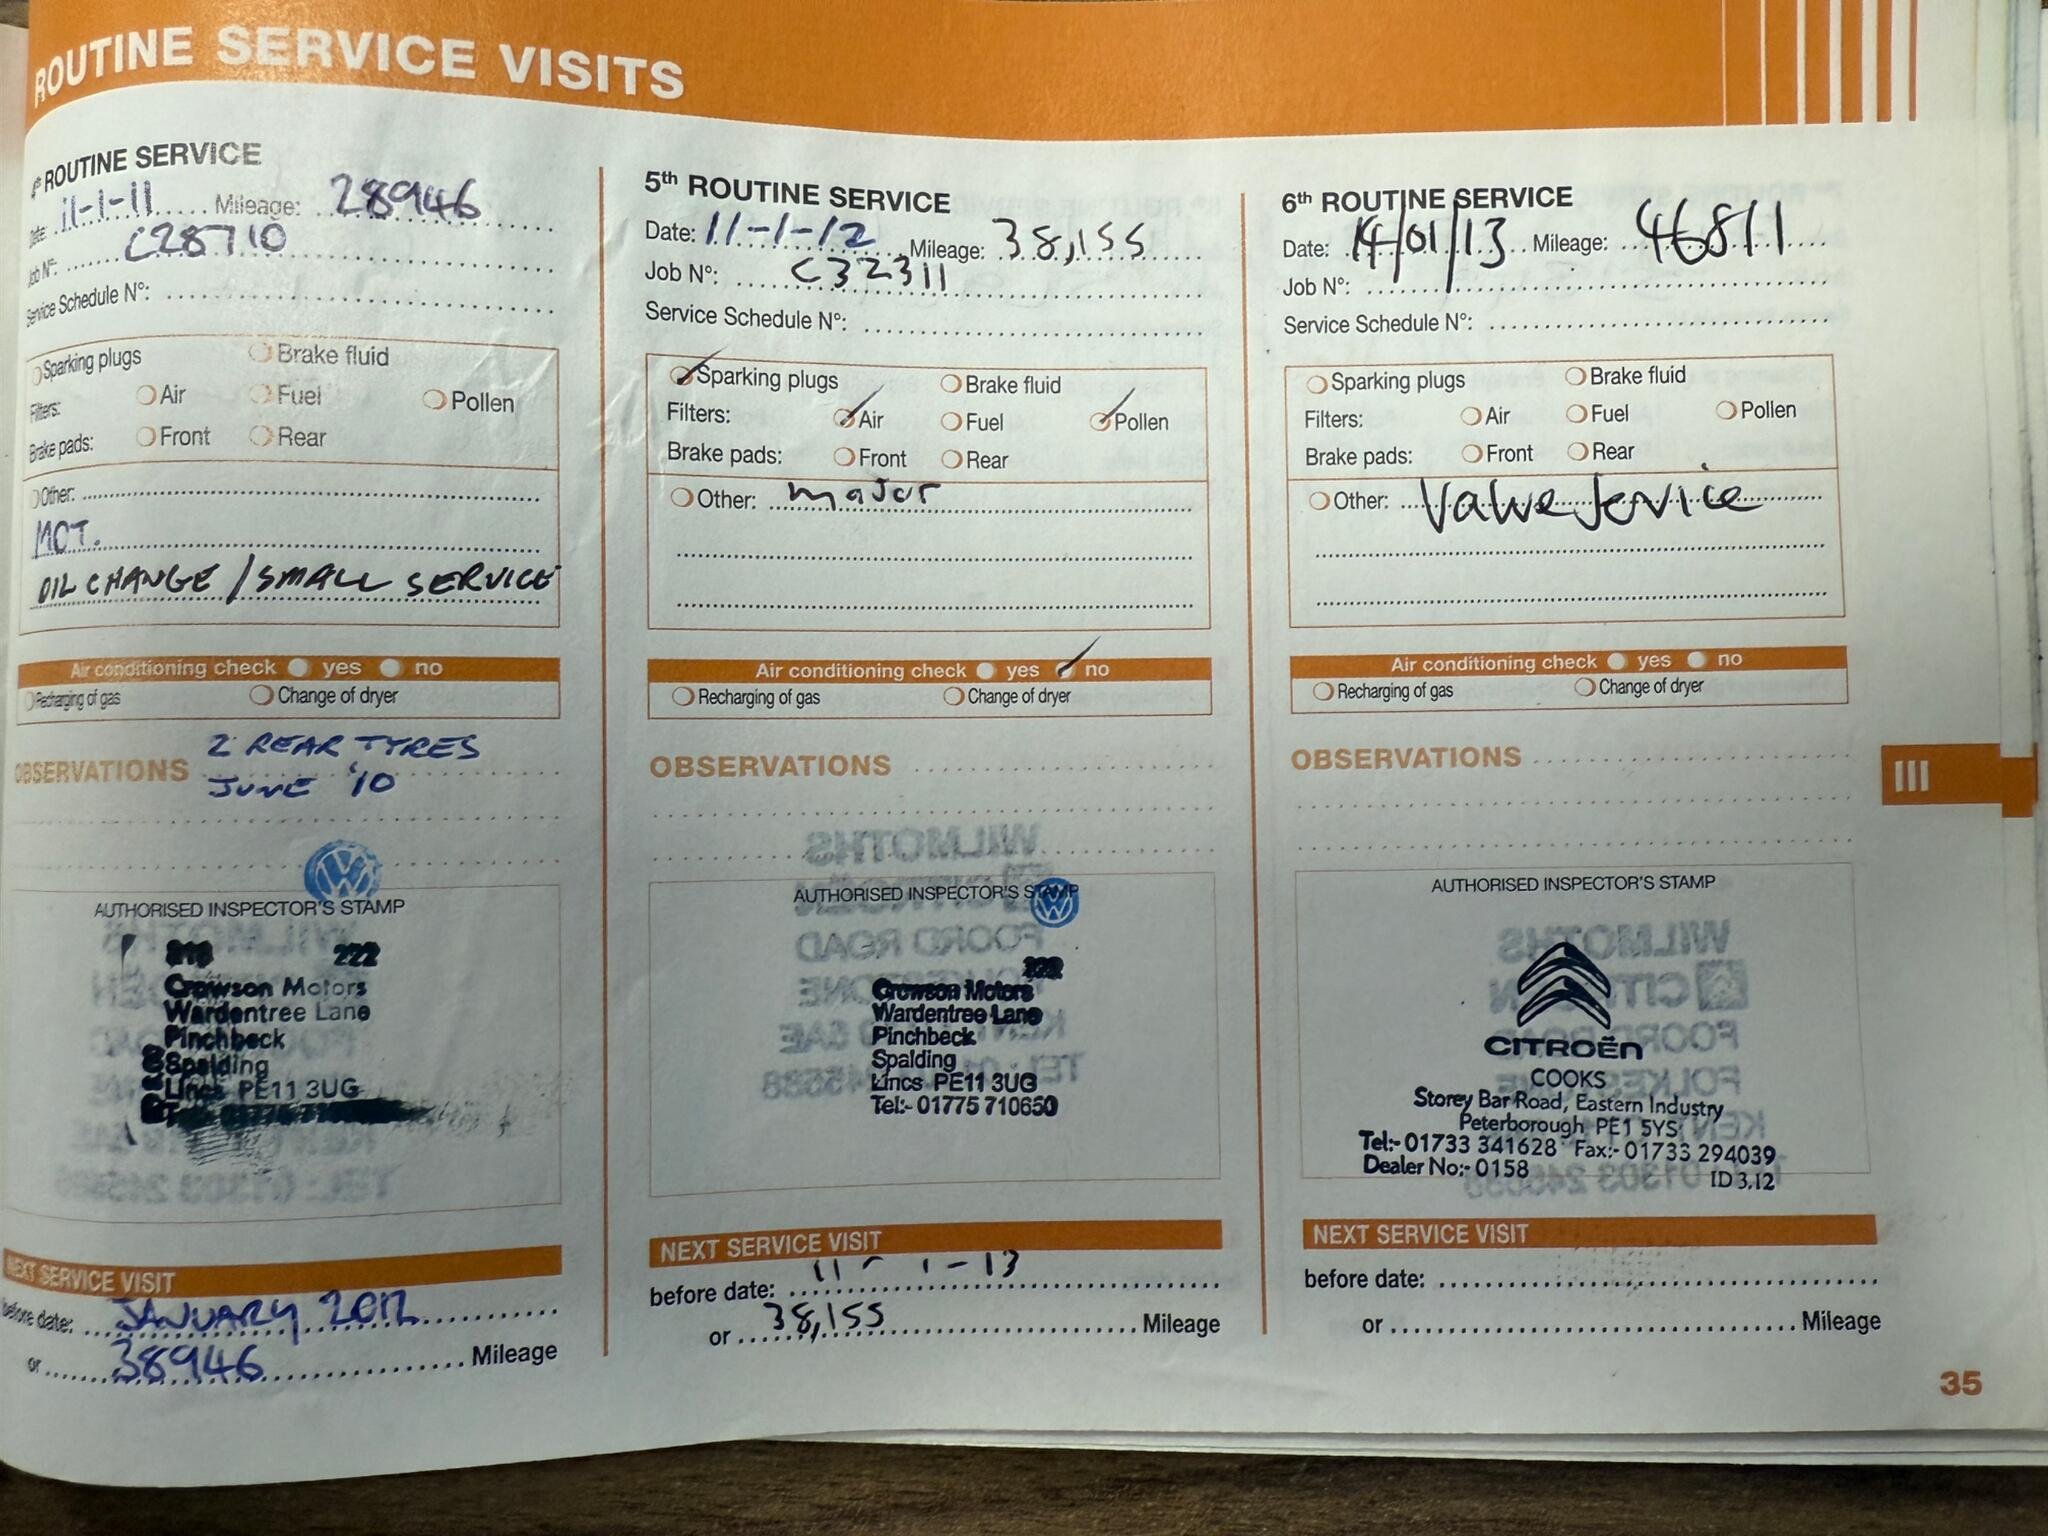 ROUTINE SERVICE VISITS
4th ROUTINE SERVICE
Date: 11-1-11 Mileage: 28946
Job N°: C28710
Service Schedule N°:
Sparking plugs Brake fluid
Filters: Air Fuel Pollen
Brake pads: Front Rear
Other:
MOT.
OIL CHANGE / SMALL SERVICE
Air conditioning check yes no
Recharging of gas Change of dryer
OBSERVATIONS 2 REAR TYRES
JUNE '10
AUTHORISED INSPECTOR'S STAMP
222
Crowson Motors
Wardentree Lane
Pinchbeck
Spalding
Lincs PE11 3UG
NEXT SERVICE VISIT
before date: JANUARY 2012
or 38946 Mileage
5th ROUTINE SERVICE
Date: 11-1-12 Mileage: 38,155
Job N°: C32311
Service Schedule N°:
Sparking plugs Brake fluid
Filters: Air Fuel Pollen
Brake pads: Front Rear
Other: major
Air conditioning check yes no
Recharging of gas Change of dryer
OBSERVATIONS
AUTHORISED INSPECTOR'S STAMP
Crowson Motors
Wardentree Lane
Pinchbeck
Spalding
Lincs PE11 3UG
Tel:- 01775 710650
NEXT SERVICE VISIT
before date: 11-1-13
or 38,155 Mileage
6th ROUTINE SERVICE
Date: 14/01/13 Mileage: 46811
Job N°:
Service Schedule N°:
Sparking plugs Brake fluid
Filters: Air Fuel Pollen
Brake pads: Front Rear
Other: Value Service
Air conditioning check yes no
Recharging of gas Change of dryer
OBSERVATIONS
AUTHORISED INSPECTOR'S STAMP
CITROËN
COOKS
Storey Bar Road, Eastern Industry
Peterborough PE1 5YS
Tel:- 01733 341628 Fax:- 01733 294039
Dealer No:- 0158 ID 3.12
NEXT SERVICE VISIT
before date:
or Mileage
III
35